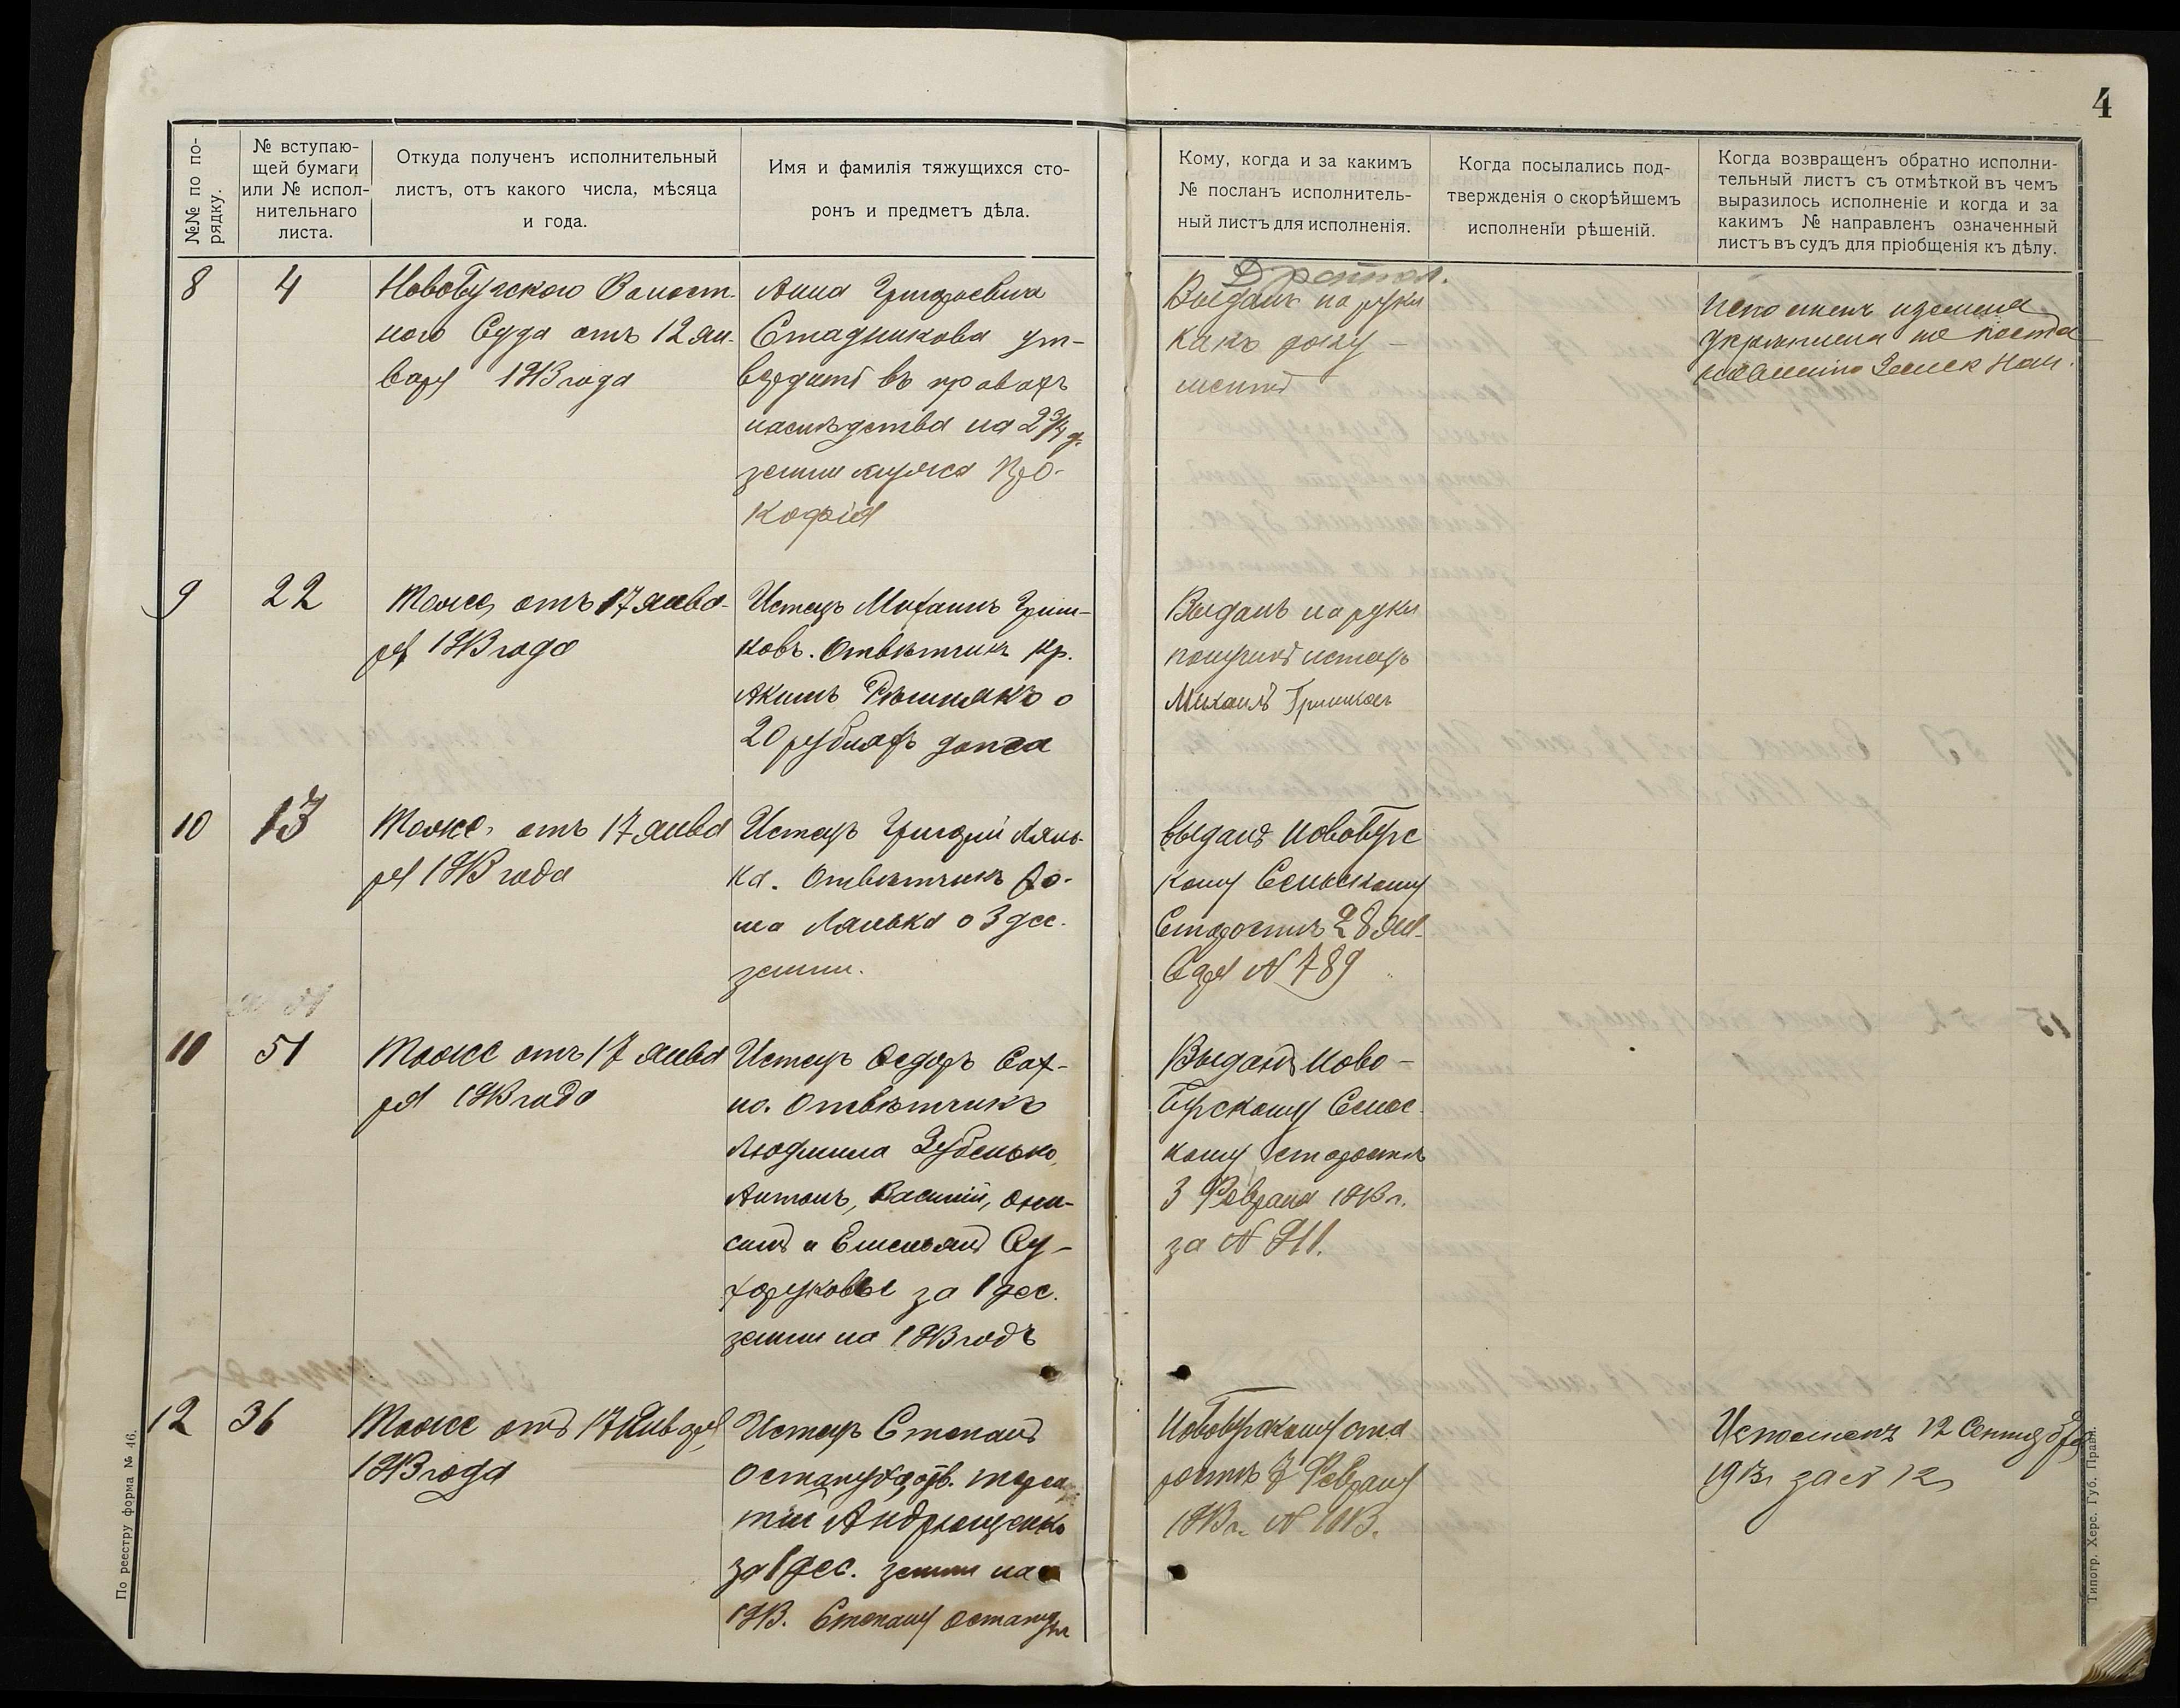 4
№№ по по-
рядку.
№ вступаю-
щей бумаги
или № испол-
нительнаго
листа.
Откуда полученъ исполнительный
листъ, отъ какого числа, мѣсяца
и года.
Имя и фамилія тяжущихся сто-
ронъ и предметъ дѣла.
Кому, когда и за какимъ
№ посланъ исполнитель-
ный листъ для исполненія.
Когда посылались под-
твержденія о скорѣйшемъ
исполненіи рѣшеній.
Когда возвращенъ обратно исполни-
тельный листъ съ отмѣткой въ чемъ
выразилось исполненіе и когда и за
какимъ № направленъ означенный
листъ въ судъ для пріобщенія къ дѣлу.
8
4
Новобугского Волост-
ного Суда отъ 12 ян-
варя 1913 года
Анна Григорьевна
Стадникова ут-
вердить въ правахъ
наслѣдства на 2¾ д.
земли мужа Про-
кофія
Выданъ на руки
какъ доку-
ментъ
земля
9
22
Тоже, отъ 17 янва-
ря 1913 года
Истецъ Михаилъ Гриш-
ковъ. Отвѣтчикъ кр.
Акимъ о
20 рубляхъ долга
Выданъ на руки
получилъ истецъ
Михаилъ Гришковъ
10
13
Тоже, отъ 17 янва
ря 1913 года
Истецъ Григорій Ляль-
ка. Отвѣтчикъ Фо-
ма Лялька о 3 дес.
земли.
Выданъ Новобугс
кому Сельскому
Старостѣ 28 ян-
варя N 789
11
51
Тоже отъ 17 янва
ря 1913 года
Истецъ Федоръ Сах-
но. Отвѣтчикъ
Людмила Зубенько,
Антонъ, Василій, Они-
симъ и Емельянъ Су-
хоруковы за 1 дес.
земли на 1913 годъ
Выданъ Ново-
бугскому Сельс-
кому старостѣ
3 Февраля 1913 г.
за N 911.
12
36
Тоже отъ 17 Января
1913 года
Истецъ Степанъ
отв.
Андрющенко
за 1 дес. земли на
1913. Степану
Новобугскому ста
ростѣ 7 Февраля
1913 г. N 1013.
Исполненъ 12 Сентября
1913 г за N 12
По реестру форма № 46.
Типогр. Херс. Губ. Правл.